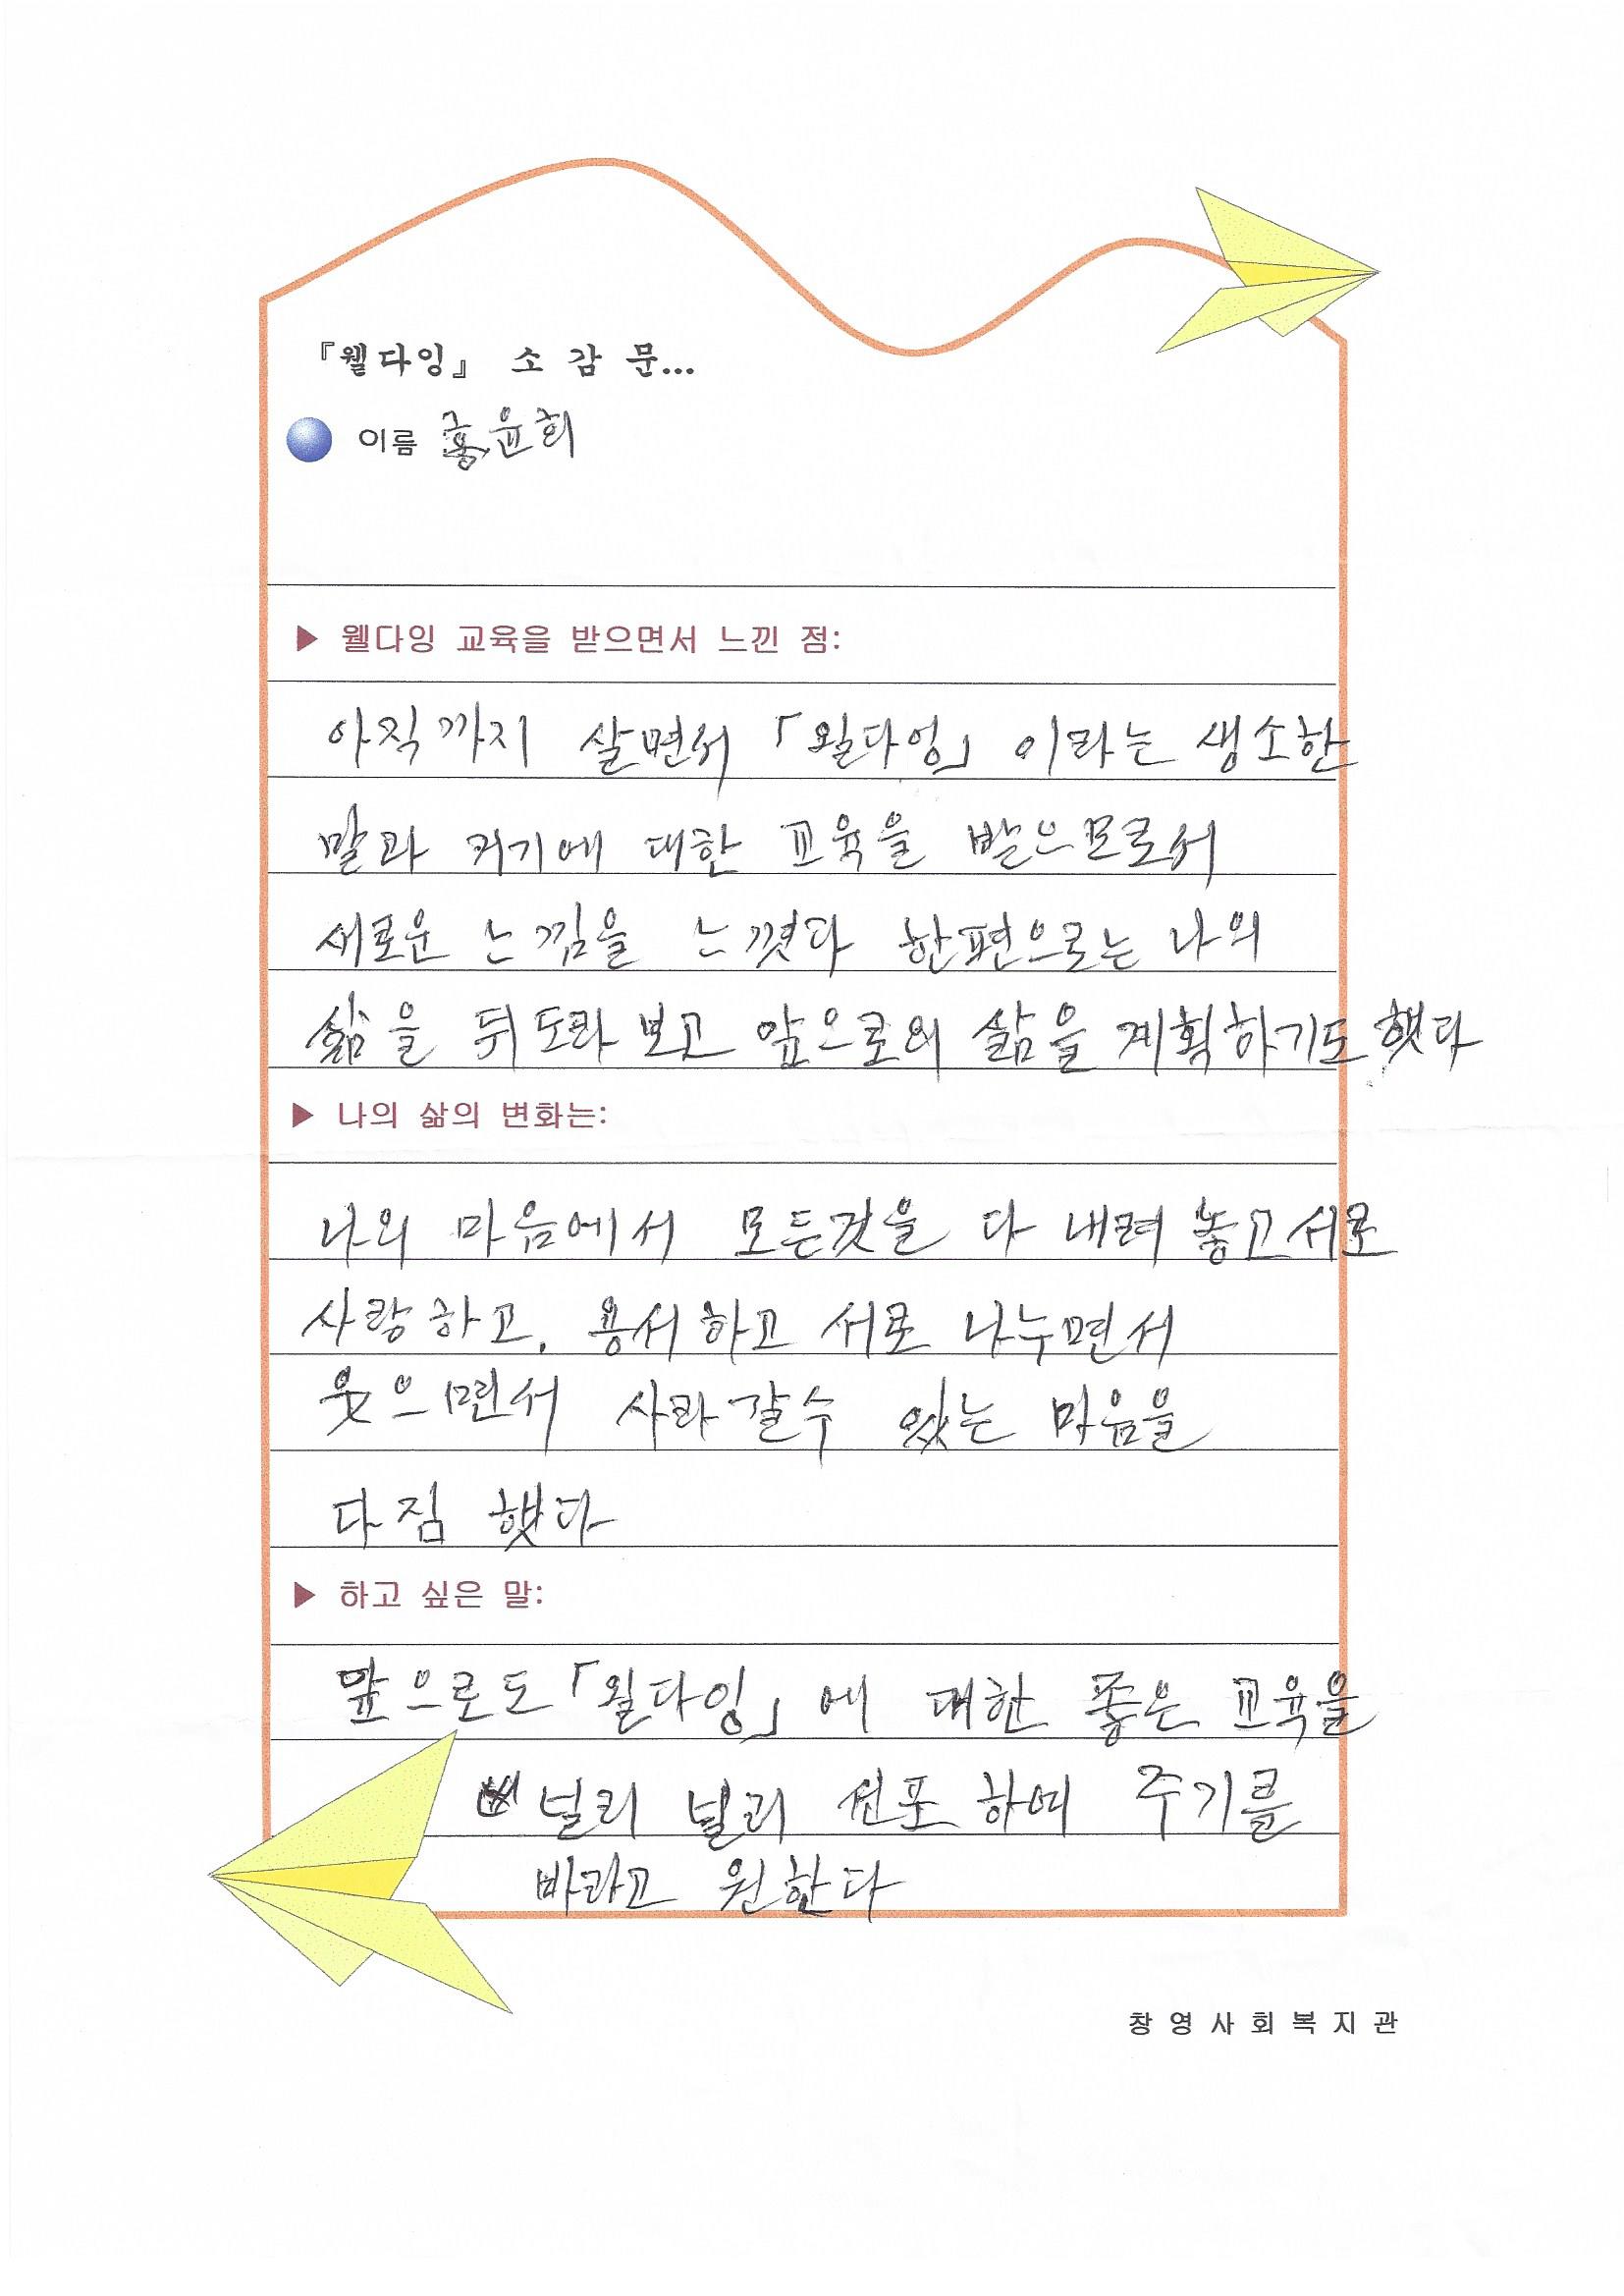 『웰다잉』 소 감 문...
이름 홍윤희
▶ 웰다잉 교육을 받으면서 느낀 점:
아직까지 살면서 「윌다잉」 이라는 생소한
말과 거기에 대한 교육을 받으므로서
새로운 느낌을 느꼈다 한편으로는 나의
삶을 뒤도라보고 앞으로의 삶을 계획하기도 했다
▶ 나의 삶의 변화는:
나의 마음에서 모든것을 다 내려 놓고 서로
사랑하고, 용서하고 서로 나누면서
웃으면서 사라갈수 있는 마음을
다짐 했다
▶ 하고 싶은 말:
앞으로도 「윌다잉」 에 대한 좋은 교육을
널리 널리 선포 하여 주기를
바라고 원한다
창영사회복지관